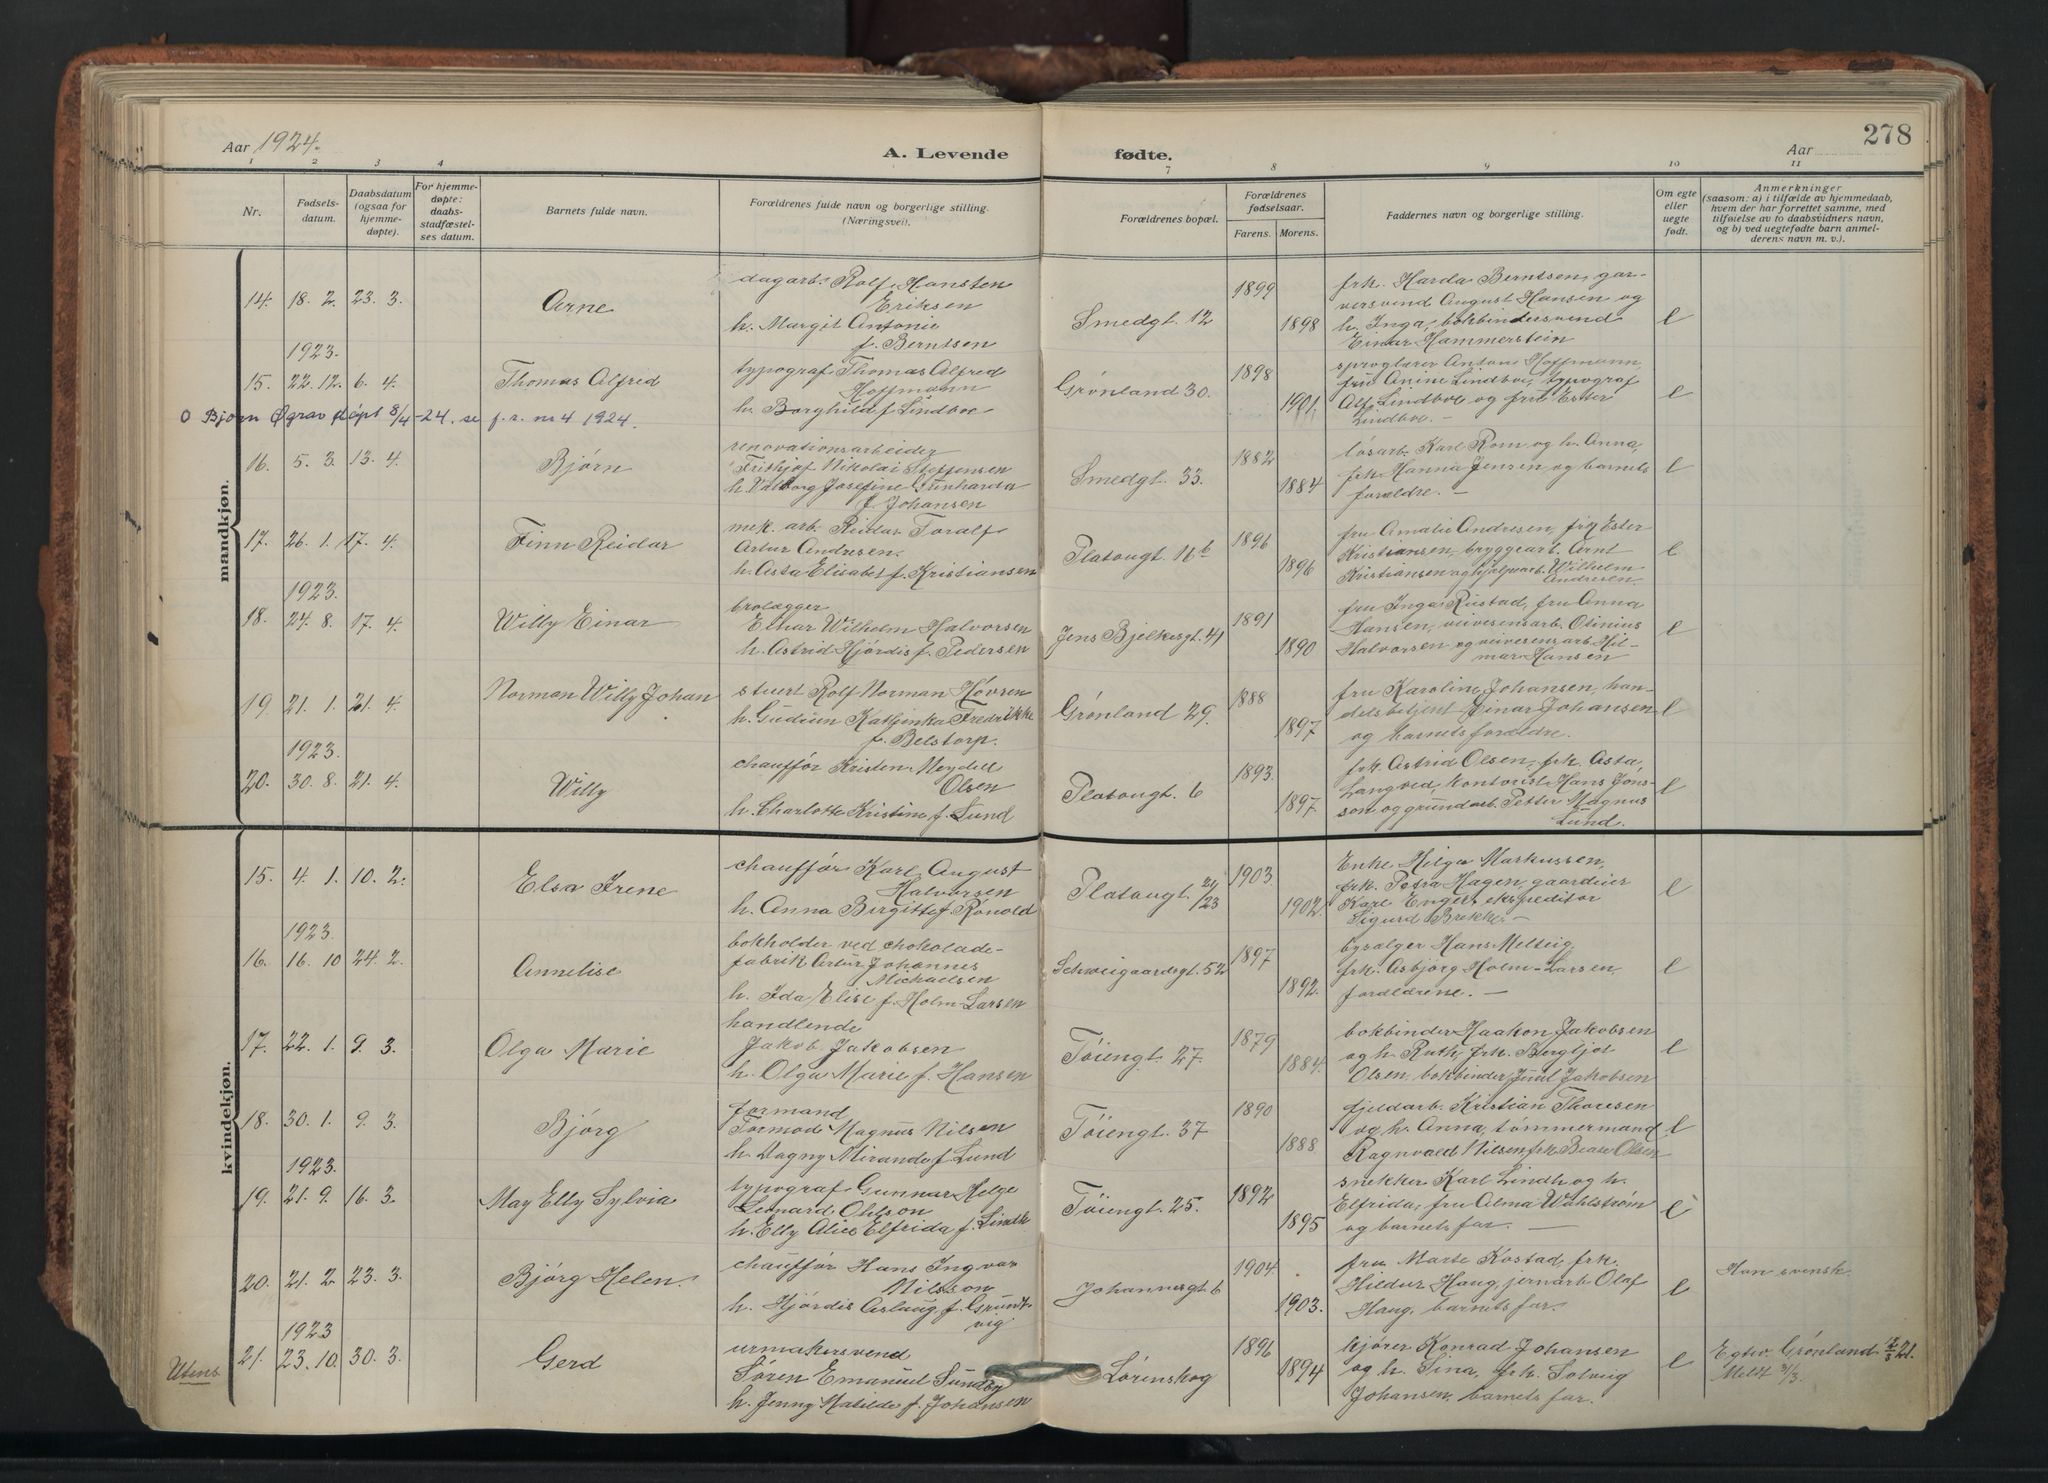 278
Aar 1924.
A. Levende fødte.
Aar
1 2 3 4 5 6 7 8 9 10 11
Nr.
Fødselsdatum.
Daabsdatum (ogsaa for hjemmedøpte).
For hjemmedøpte: daabsstadfæstelses datum.
Barnets fulde navn.
Forældrenes fulde navn og borgerlige stilling. (Næringsvei).
Forældrenes bopæl.
Forældrenes fødselsaar.
Farens. Morens.
Faddernes navn og borgerlige stilling.
Om egte eller uegte født.
Anmerkninger
(saasom: a) i tilfælde av hjemmedaab, hvem der har forrettet samme, med tilføielse av to daabsvidners navn, og b) ved uegtefødte barn anmelderens navn m. v.).
mandkjøn.
14. 18. 2. 23. 3. Arne
dagarb. Rolf Hansten
Eriksen
h. Margit Antonie
f. Berntsen
Smedgt. 12
1899 1898
frk. Harda Berntsen, gar-
versvend August Hansen og
h. Inga, bokbindersvend
Einar Hammerstein
e
1923.
15. 22. 12. 6. 4. Thomas Alfred
typograf Thomas Alfred
Hoffmann
h. Borghild f. Lindboe
Grønland 30.
1898 1901.
sproglærer Anton Hoffmann,
fru Anine Lindboe, typograf
Alf Lindboe og fru Ester
Lindboe. -
e
O Bjørn Øgrav døpt 8/4-24. se f. r. nr 4 1924.
16. 5. 3. 13. 4. Bjørn
renovationsarbeider
Frithjof Nikolai Steffensen
h. Valborg Josefine Gunharda
f. Johansen
Smedgt. 33.
1882 1884
løsarb. Karl Rom og h. Anna,
frk. Hanna Jensen og barnets
forældre. -
e
17. 26. 1. 17. 4. Finn Reidar
mek. arb. Reidar Toralf
Artur Andresen.
h. Asta Elisabet f. Kristiansen
Platougt. 16 b
1896 1896
fru Amalie Andresen, frk Ester
Kristiansen, bryggearb. Arnt
Kristiansen og hjelpearb. Wilhelm
Andresen
e
1923.
18. 24. 8. 17. 4. Willy Einar
brolægger
Einar Wilhelm Halvorsen
h. Astrid Hjørdis f. Pedersen
Jens Bjelkesgt. 41
1891 1890
fru Inga Rustad, fru Anna
Hansen, veivesensarb. Otinius
Halvorsen og veivesensarb Hil-
mar Hansen
e
19. 21. 1. 21. 4. Norman Willy Johan
stuert Rolf Norman Hovren
h. Gudrun Katinka Fredrikke
f. Belstorp.
Grønland 29.
1888 1897
fru Karoline Johansen, han-
delsbetjent Einar Johansen
og barnets forældre.
e
1923.
20. 30. 8. 21. 4. Willy
chauffør Kristen Meydell
Olsen
h. Charlotte Kristine f. Lund
Platougt. 6
1893. 1897.
frk. Astrid Olsen, frk. Asta
Langved, kontorist Hans Jons-
son og grundarb. Petter Magnus
Lund.
e
kvindekjøn.
15. 4. 1. 10. 2. Elsa Irene
chauffør Karl August
Halvorsen
h. Anna Birgitte f. Ronold
Platougt. 21/23
1903 1902.
Enke Helga Markussen,
frk. Petra Hagen, gaardeier
Karl Enger, ekspeditør
Sigurd Brekke -
e
1923.
16. 16. 10 24. 2. Annelise
bokholder ved chokolade-
fabrik Artur Johannes
Michaelsen
h. Ida Elise f. Holm-Larsen
Schweigaardsgt. 52
1897 1892.
bysælger Hans Melteig,
frk. Asbjørg Holm-Larsen,
forældrene. -
e
17. 22. 1. 9. 3. Olga Marie
handlende
Jakob Jakobsen
h. Olga Marie f. Hansen
Tøiengt. 27.
1879 1884.
bokbinder Haakon Jakobsen
og h. Ruth, frk. Bergljot
Olsen, bokbinder Juul Jakobsen
e
18. 30. 1. 9. 3. Bjørg
formand
Tormod Magnus Nilsen
h. Dagny Mirande f. Lund
Tøiengt. 37
1890 1888
fjeldarb. Kristian Thoresen
og h. Anna, tømmermand
Ragnvald Nilsen, frk Beate Olsen
e
1923.
19. 21. 9. 16. 3. May Elly Sylvia
typograf Gunnar Helge
Leonard Ohlson
h. Elly Alice Elfrida f. Lindh
Tøiengt. 25.
1892 1895
snekker Karl Lindh og h.
Elfrida, fru Alma Wahlstrøm
og barnets far. -
e
20. 21. 2. 23. 3. Bjørg Helen.
chauffør Hans Ingvar
Nilsson
h. Hjørdis Aslaug f. Grundt-
vig
Johannesgt. 6
1904 1903.
fru Marte Kostad, frk.
Hildur Haug, jernarb. Olaf
Haug, barnets far.
e
Han svensk.
1923
Utens
21. 23. 10. 30. 3. Gerd
urmakersvend
Søren Emanuel Sundby
h. Jenny Matilde f. Johansen
Lørenskog
1896 1894
kjører Konrad Johansen
og h. Sina, frk. Solveig
Johansen, barnets far.
e
Egtev. Grønland 21.
Meldt 31/3.